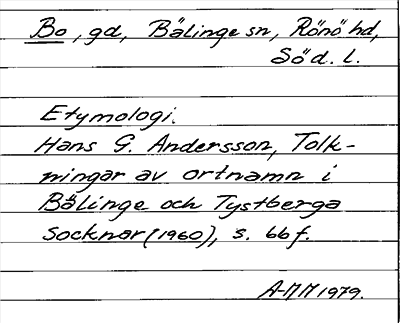 Bo, gd, Bälinge sn, Rönö hd,
Söd. l.
Etymologi.
Hans G. Andersson, Tolk-
ningar av ortnamn i
Bälinge och Tystberga
socknar (1960), s. 66 f.
A-MM 1979.